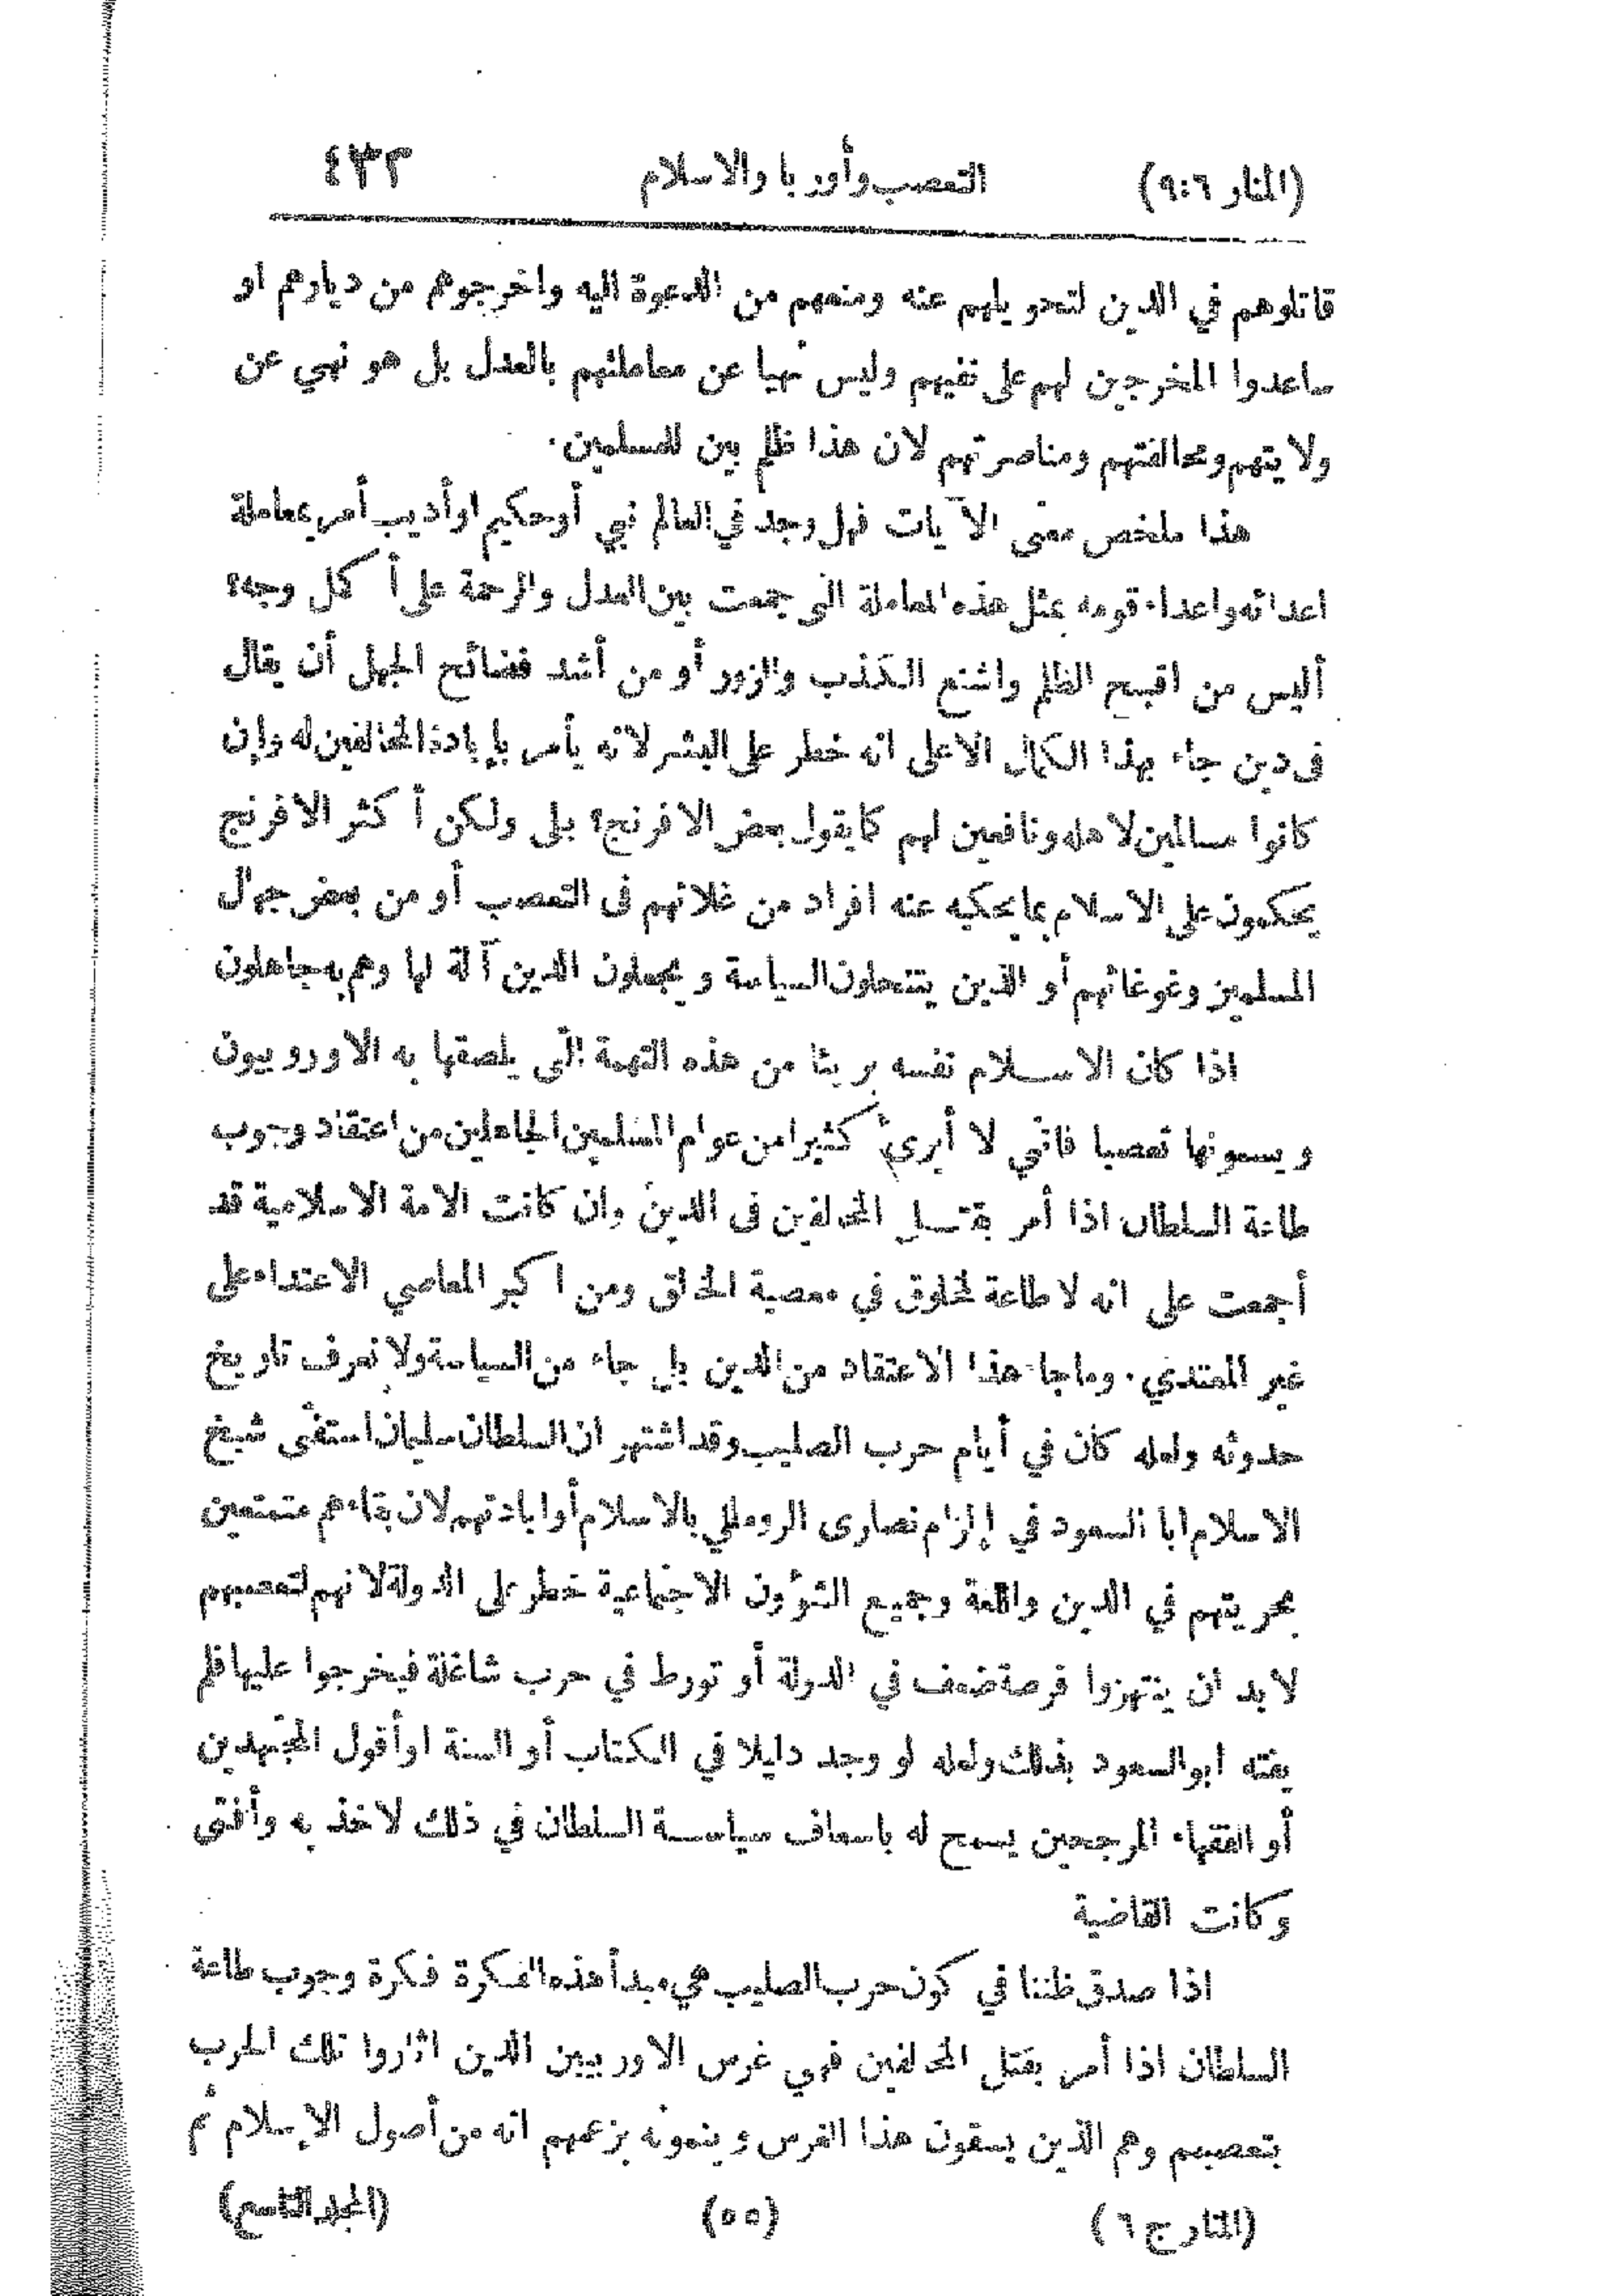 (المنار ٩:٦) التعصب وأوربا والاسلام ٤٣٣
قاتلوهم في الدين لتحويلهم عنه ومنعهم من الدعوة اليه واخرجوهم من ديارهم او
ساعدوا المخرجين لهم على نفيهم وليس نهيا عن معاملتهم بالعدل بل هو نهي عن
ولايتهم ومحالفتهم ومناصرتهم لان هذا ظلم بين للمسلمين.
هذا ملخص معنى الآيات فهل وجد في العالم نبي أوحكيم اوأديب أمر بمعاملة
اعدائه واعداء قومه بمثل هذه المعاملة التي جمعت بين العدل والرحمة على أكمل وجه؟
أليس من اقبح الظلم واشنع الكذب والزور أو من أشد فضائح الجهل أن يقال
في دين جاء بهذا الكمال الاعلى انه خطر على البشر لانه يأمر بإبادة المخالفين له وإن
كانوا مسالمين لاهله ونافعين لهم كما يقول بعض الافرنج؟ بلى ولكن أكثر الافرنج
يحكمون على الاسلام بما يحكيه عنه افراد من غلاتهم في التعصب أو من بعض جهال
المسلمين وغوغائهم أو الذين ينتحلون السياسة ويجعلون الدين آلة لها وهم به جاهلون
اذا كان الاسلام نفسه بريئا من هذه التهمة التي يلصقها به الاوروبيون
ويسمونها تعصبا فانني لا أبرئ كثيرا من عوام المسلمين الجاهلين من اعتقاد وجوب
طاعة السلطان اذا أمر بقتل المخالفين في الدين وان كانت الامة الاسلامية قد
أجمعت على انه لا طاعة لمخلوق في معصية الخالق ومن اكبر المعاصي الاعتداء على
غير المعتدي. وماجاء هذا الاعتقاد من الدين بل جاء من السياسة ولا نعرف تاريخ
حدوثه ولعله كان في أيام حرب الصليب وقد اشتهر ان السلطان سليمان استفتى شيخ
الاسلام ابا السعود في إلزام نصارى الروملي بالاسلام أو ابادتهم لان بقاءهم متمتعين
بحريتهم في الدين واللغة وجميع الشؤون الاجتماعية خطر على الدولة لانهم لتعصبهم
لابد ان ينتهزوا فرصة ضعف في الدولة أو تورط في حرب شاغلة فيخرجوا عليها فلم
يفته ابو السعود بذلك ولعله لو وجد دليلا في الكتاب أو السنة اوأقول المجتهدين
أو الفقهاء المرجحين يسمح له باسعاف سياسة السلطان في ذلك لاخذ به وأفتى
وكانت القاضية
اذا صدق ظننا في كون حرب الصليب هي مبدأ هذه الفكرة فكرة وجوب طاعة
السلطان اذا أمر بقتل المخالفين فهي غرس الاوربيين الذين اثاروا تلك الحرب
بتعصبهم وهم الذين يسقون هذا الغرس وينمونه بزعمهم انه من أصول الإسلام ثم
(المنارج ٦) (٥٥) (المجلد التاسع)